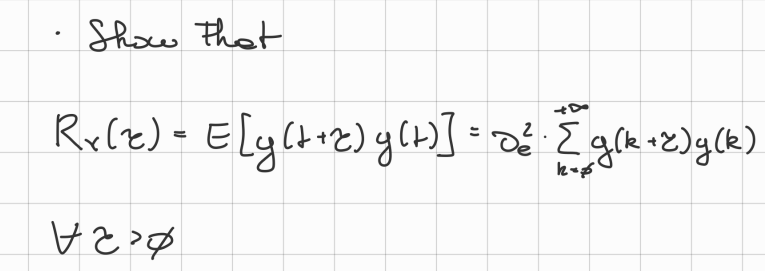 · Show that
Rᵧ(τ) = E[y(t+τ) y(t)] = σₑ² · ∑_{k=0}^{+∞} g(k+τ) g(k)
∀ τ > 0